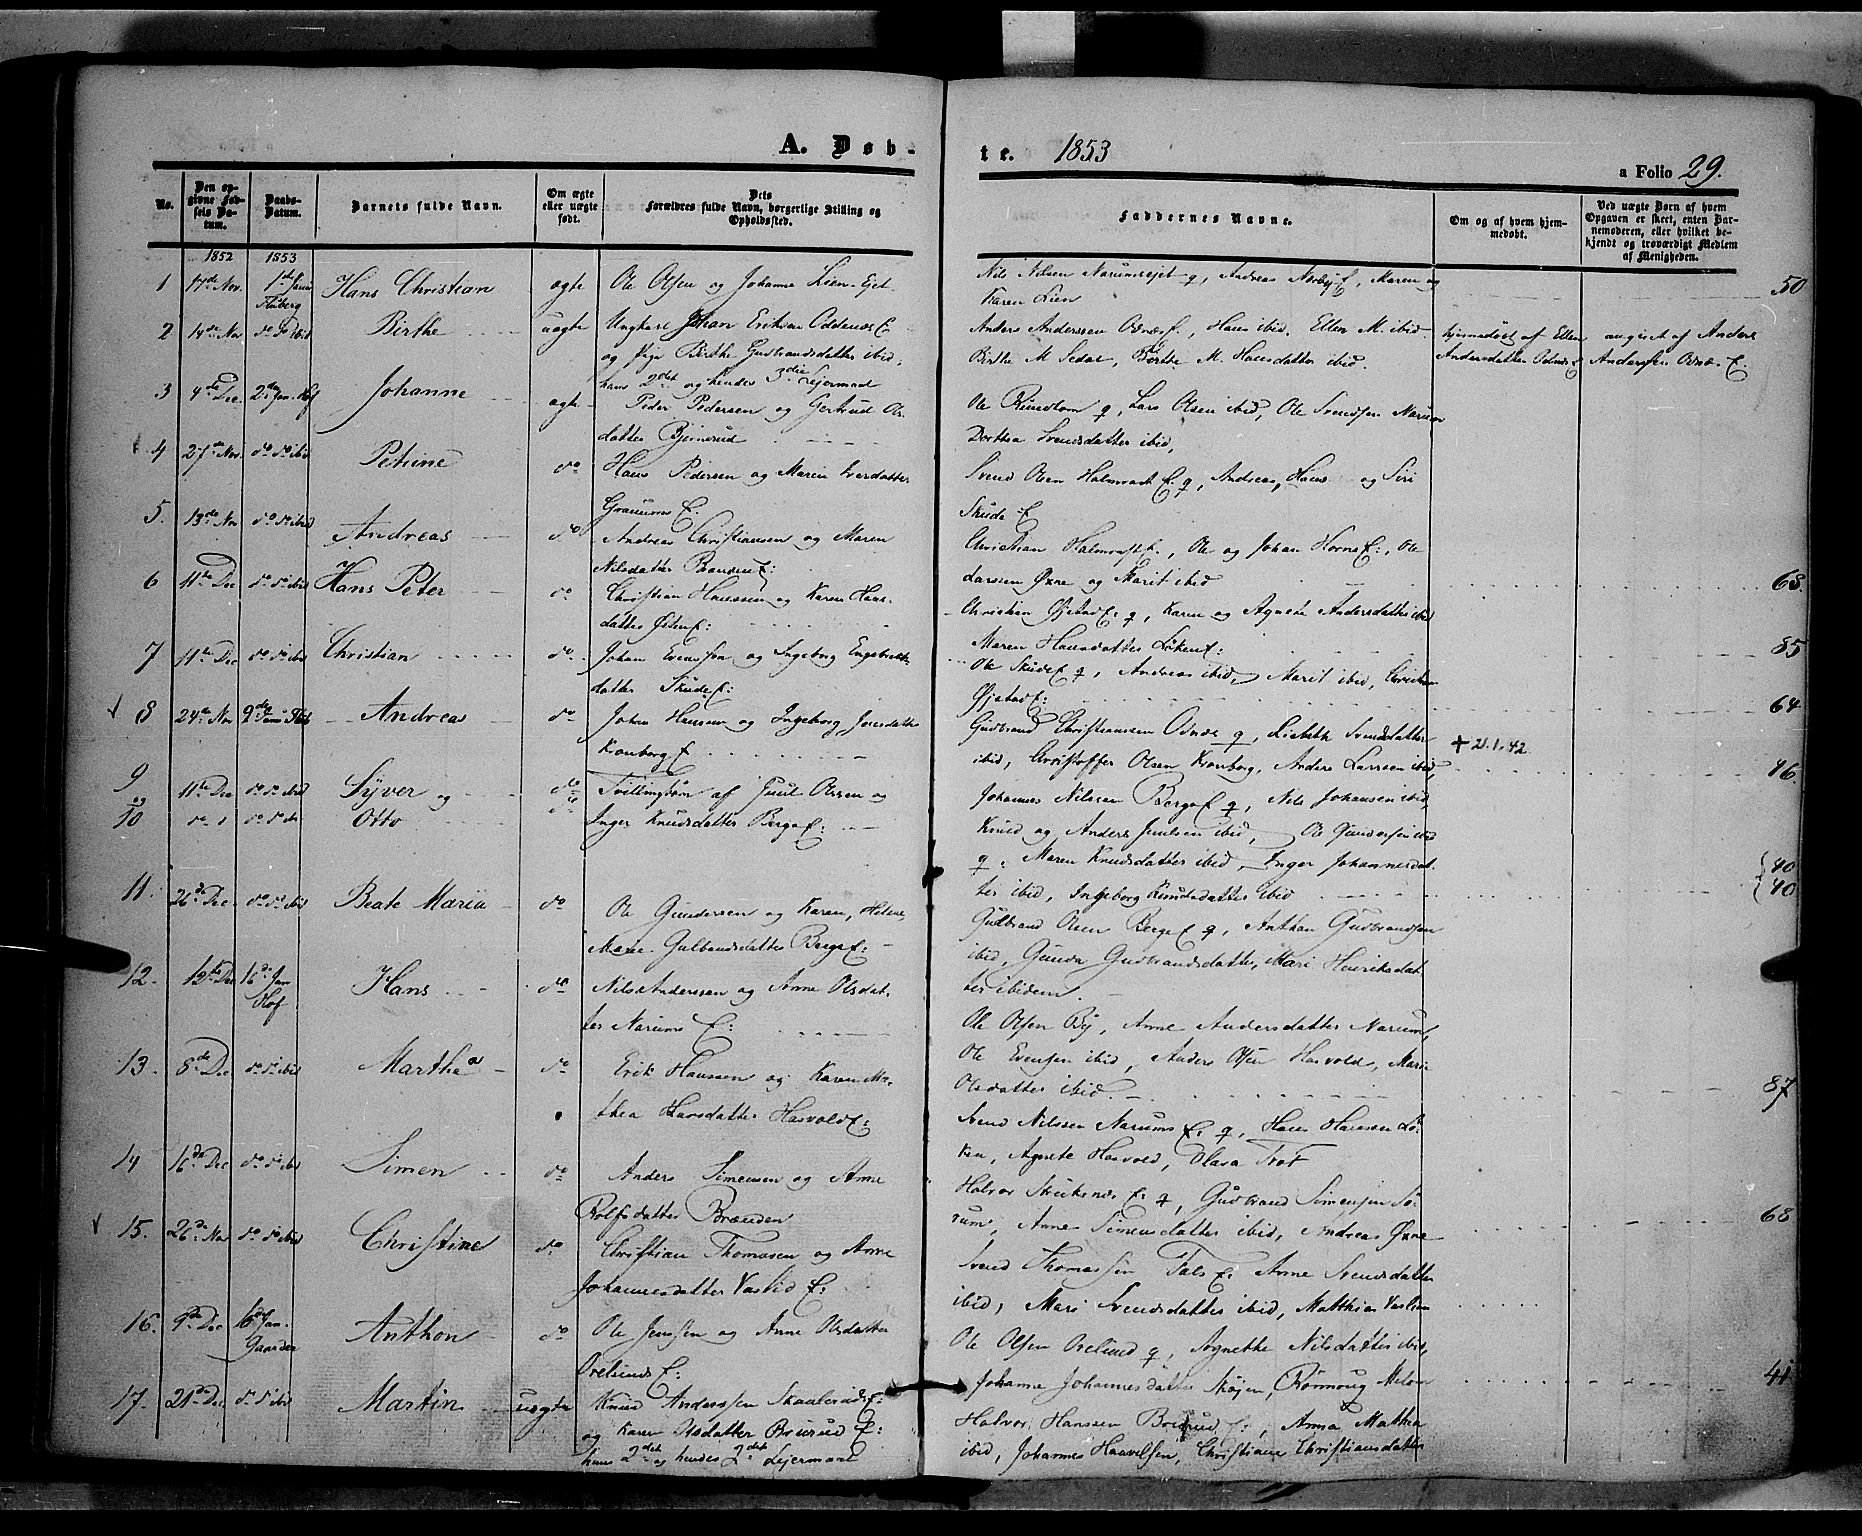 A. Døb-
te. 1853
a Folio 29.
No.
Den op-
givne Fød-
sels Da-
tum.
Daabs-
Datum.
Barnets fulde Navn.
Om ægte
eller uægte
født.
Dets
Forældres fulde Navn, borgerlige Stilling og
Opholdssted.
Faddernes Navne.
Om og af hvem hjem-
medøbt.
Ved uægte Børn af hvem
Opgaven er skeet, enten Bar-
nemoderen, eller hvilket be-
kjendt og troværdigt Medlem
af Menigheden.
1852 1853
1 17de Nov. 1ste Janu Fluberg Hans Christian ægte Ole Olsen og Johanne Lien Ejet
Nils Nilsen Narumsejet q, Andreas Nørby E, Maren og
Karen Lien 50
2 14de Nov do do ibid Birthe uægte Ungkarl Johan Eriksen Odnæs E.
og Pige Birthe Gudbrandsdatter ibid,
hans 2det og hendes 3die Lejermaal
Anders Anderssen Odnæs E., Hans ibid. Ellen M. ibid
Birthe M. Sedal, Birthe M. Hansdatter ibid.
hjemmedøbt af Ellen
Andersdatter Odnæs E
angivet af Anders
Andersen Odnæs E.
3 4de Dec 2den Jan. Hof Johanne ægte Peder Pedersen og Gertrud Ols-
datter Bjørnerud
Ole Rundtom q, Lars Olsen ibid, Ole Svendsen Narum
Dorthea Svendsdatter ibid,
4 27de Nov do do ibid Petrine do Hans Pedersen og Maren Iversdatter
Granum E.
Svend Olsen Halmrast E. q, Andreas, Hans og Siri
Skude E
5. 13de Nov do do ibid Andreas do Andreas Christiansen og Maren
Nilsdatter Branden E:
Christian Halmrast E., Ole og Johan Horns E:, Ole
Larsen Øxne og Marit ibid
6 11te Dec do do ibid Hans Peter do Christian Hanssen og Karen Hans-
datter Østen E:
Christian Øjstad E. q, Karen og Agnete Andersdatter ibid
Maren Hansdatter Løken E: 68.
7 11te Dec do do ibid Christian do. Johan Evenssen og Ingeborg Engebrets-
datter Skude E:
Ole Skude E q, Andreas ibid, Marit ibid, Christian
Øjstad E: 85
8 24de Nov 9de Janu Flub Andreas do Johan Hansen og Ingeborg Jensdatter
Kronborg E
Gudbrand Christianssen Odnæs q, Lisbeth Svendsdatter
ibid, Christoffer Olsen Kronborg, Anders Larssen ibid,
+ 21.1.42. 64
9 11te Dec do do ibid Syver og do Tvillingbørn af Juul Olssen og
10 do do do do Otto do Inger Knudsdatter Berge E:
Johannes Nilssen Berge E q, Nils Johansen ibid,
Knud og Anders Juulsen ibid, Ole Gundersen ibid
q, Maren Knudsdatter ibid, Inger Johannesdat-
ter ibid, Ingeborg Knudsdatter ibid 46.
11. 26de Dec do do ibid Beate Maria do Ole Gundersen og Karen, Helene,
Marie Gulbrandsdatter Berge E:
Gudbrand Olsen Berge E q, Anthon Gudbrandsen
ibid, Gunda Gudbrandsdatter, Mari Henriksdat-
ter ibidem. 40
40
12. 12te Dec 16de Jan Hof Hans do Nils Anderssen og Anne Olsdat-
ter Narums E:
Ole Olsen By, Anne Andersdatter Narum,
Ole Evensen ibid, Anders Olsen Hasvold, Mari
Olsdatter ibid. 87
13. 8de Dec do do ibid Marthea do Erik Hanssen og Karen Ma-
thea Larsdatter Hasvold E:
Svend Nilssen Narums E. q, Hans Hanssen Lø-
ken, Agnete Hasvold, Olava Trot
14 16de Dec do do ibid Simen do Anders Simensen og Anne
Rolfsdatter Brænden
Halvor Skriksnæs E: q, Gudbrand Simensen Sø-
rum, Anne Simensdatter ibid, Andreas Øxne 68
15. 26de Nov do do ibid Christine do Christian Thomassen og Anne
Johannesdatter Vaslid E:
Svend Thomassen Fals E. Anne Svendsdatter
ibid, Mari Svendsdatter ibid, Matthias Vaslien
16. 9de Dec 16de Jan. Gaarder Anthon do Ole Jenssen og Anne Olsdatter
Orelunds E:
Ole Olsen Orelund q, Agnethe Nilsdatter ibid,
Johanne Johannesdatter Skøjen, Rønnoug Melom 41
17. 21de Dec do do ibid Martin uægte Knud Anderssen Skaalerud E:
og Karen Olsdatter Brurud E:
hans 2det og hendes 2det Lejermaal
Halvor Hanssen Brurud E:, Anna Mathea
ibid, Johannes Haavelsen, Christiane Christiansdatter